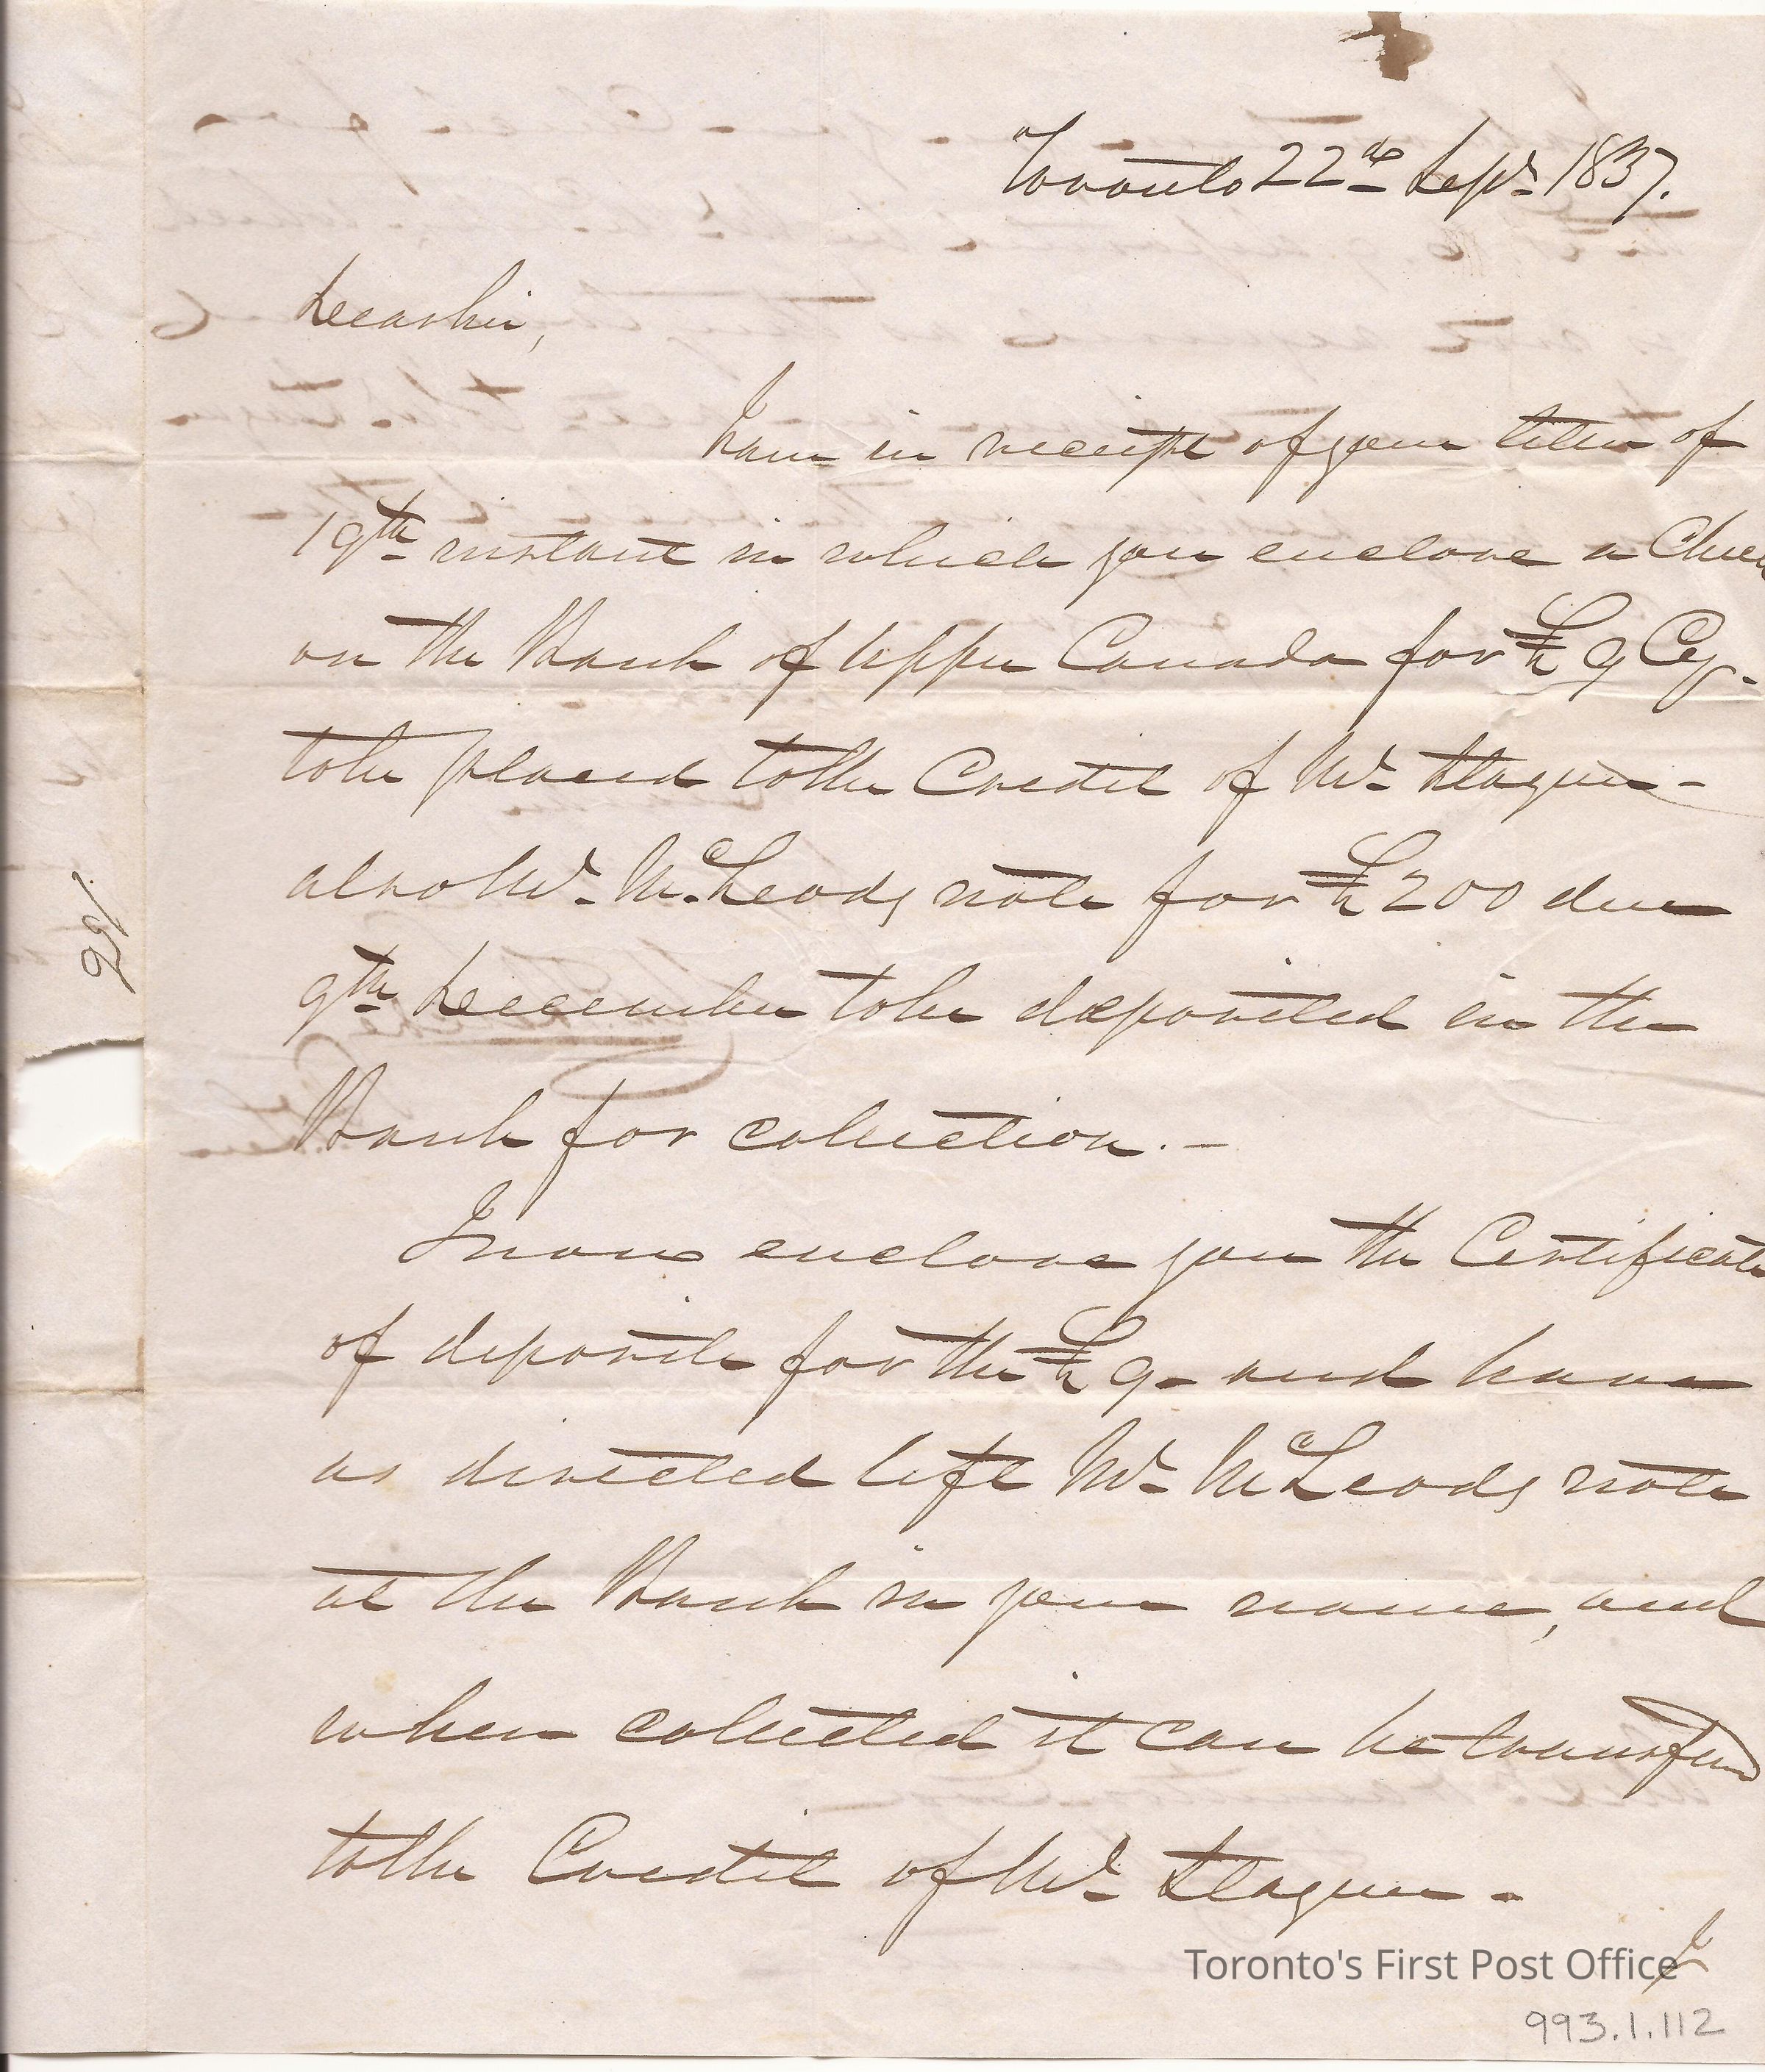 Toronto 22d Sept. 1837.
Dear Sir,
I am in receipt of your letter of
19th instant in which you enclose a Chec
on the Bank of Upper Canada for £9 Cy.
to be placed to the Credit of Mr.
also Mr. McLeods note for £200 due
9th December to be deposited in the
Bank for collection. –
I now enclose you the Certificate
of deposite for the £9 – and have
as directed left Mr. McLeods note
at the Bank in your name, and
when collected it can be transferred
to the Credit of Mr.
I
Toronto's First Post Office
993.1.112